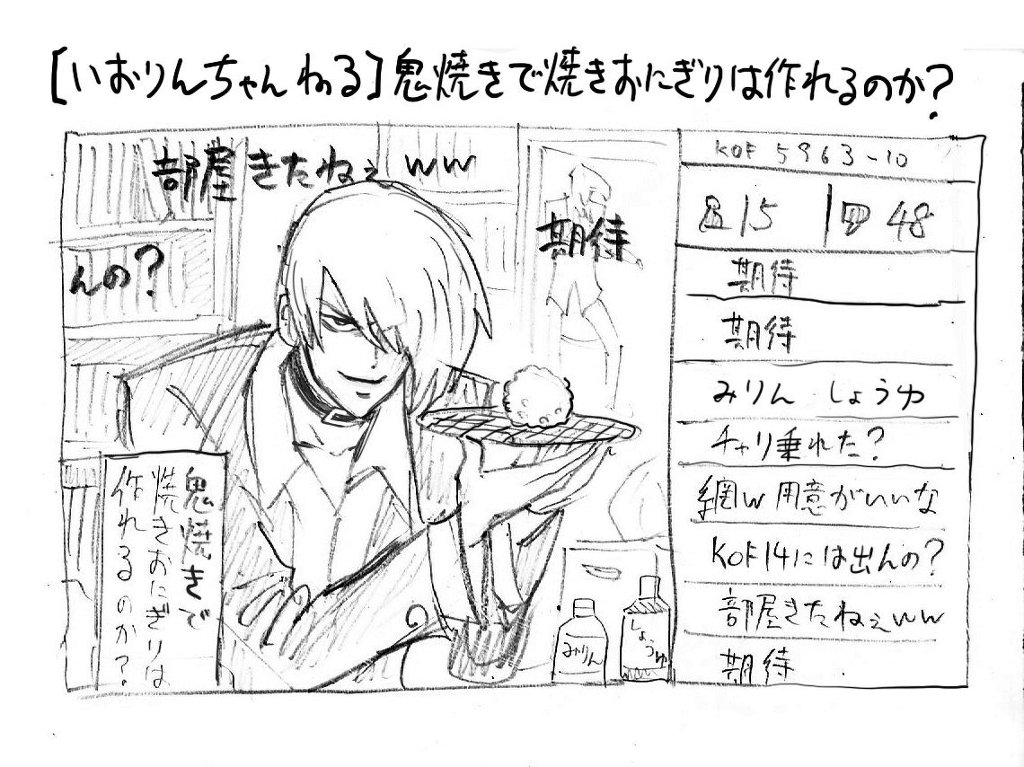 [いおりんちゃんねる]鬼焼きで焼きおにぎりは作れるのか?
部屋きたねぇww
期待
んの?
鬼焼きで
焼きおにぎりは
作れるのか?
みりん
しょうゆ
KOF 5963-10
15
48
期待
期待
みりん しょうゆ
チャリ乗れた?
網w 用意がいいな
KOF14には出んの?
部屋きたねぇww
期待